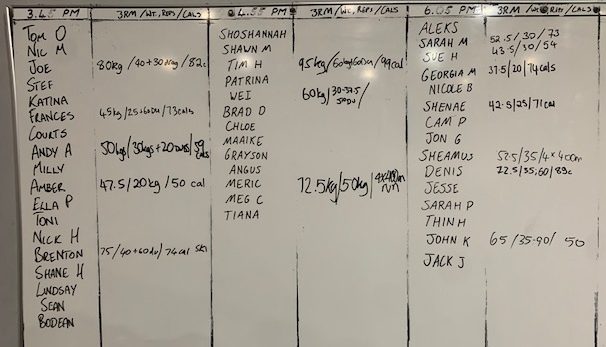 3.45 PM 3RM/WT, REPS/CALS
TOM O
NIC M
JOE 80kg /40+30 /82c
STEF
KATINA
FRANCES 45kg/25+60DU/73cals
COURTS
ANDY A 50kgs/30kgs+20 DU's/59 CALS
MILLY
AMBER 47.5/20kg/50 cal
ELLA P
TONI
NICK H
BRENTON 75/40+60du/74cal SKI
SHANE H
LINDSAY
SEAN
BODEAN
4.55 PM 3RM/WT, REPS/CALS
SHOSHANNAH
SHAWN M
TIM H 95kg/60kg/60DU/99cal
PATRINA
WEI 60kg/30-37.5/
50DU/
BRAD D
CHLOE
MAAIKE
GRAYSON
ANGUS
MERIC 72.5kg/50kg/4x400m run
MEG C
TIANA
6.05 PM 3RM/WT/REPS/CALS
ALEKS
SARAH M 52.5/30/73
SUE H 43.5/30/54
GEORGIA M 37.5/20/74cals
NICOLE B
SHENAE 42.5/25/71cal
CAM P
JON G
SHEAMUS 52.5/35/4x400m
DENIS 22.5/35,60/83c
JESSE
SARAH P
THINH
JOHN K 65/35-90/ 50
JACK J